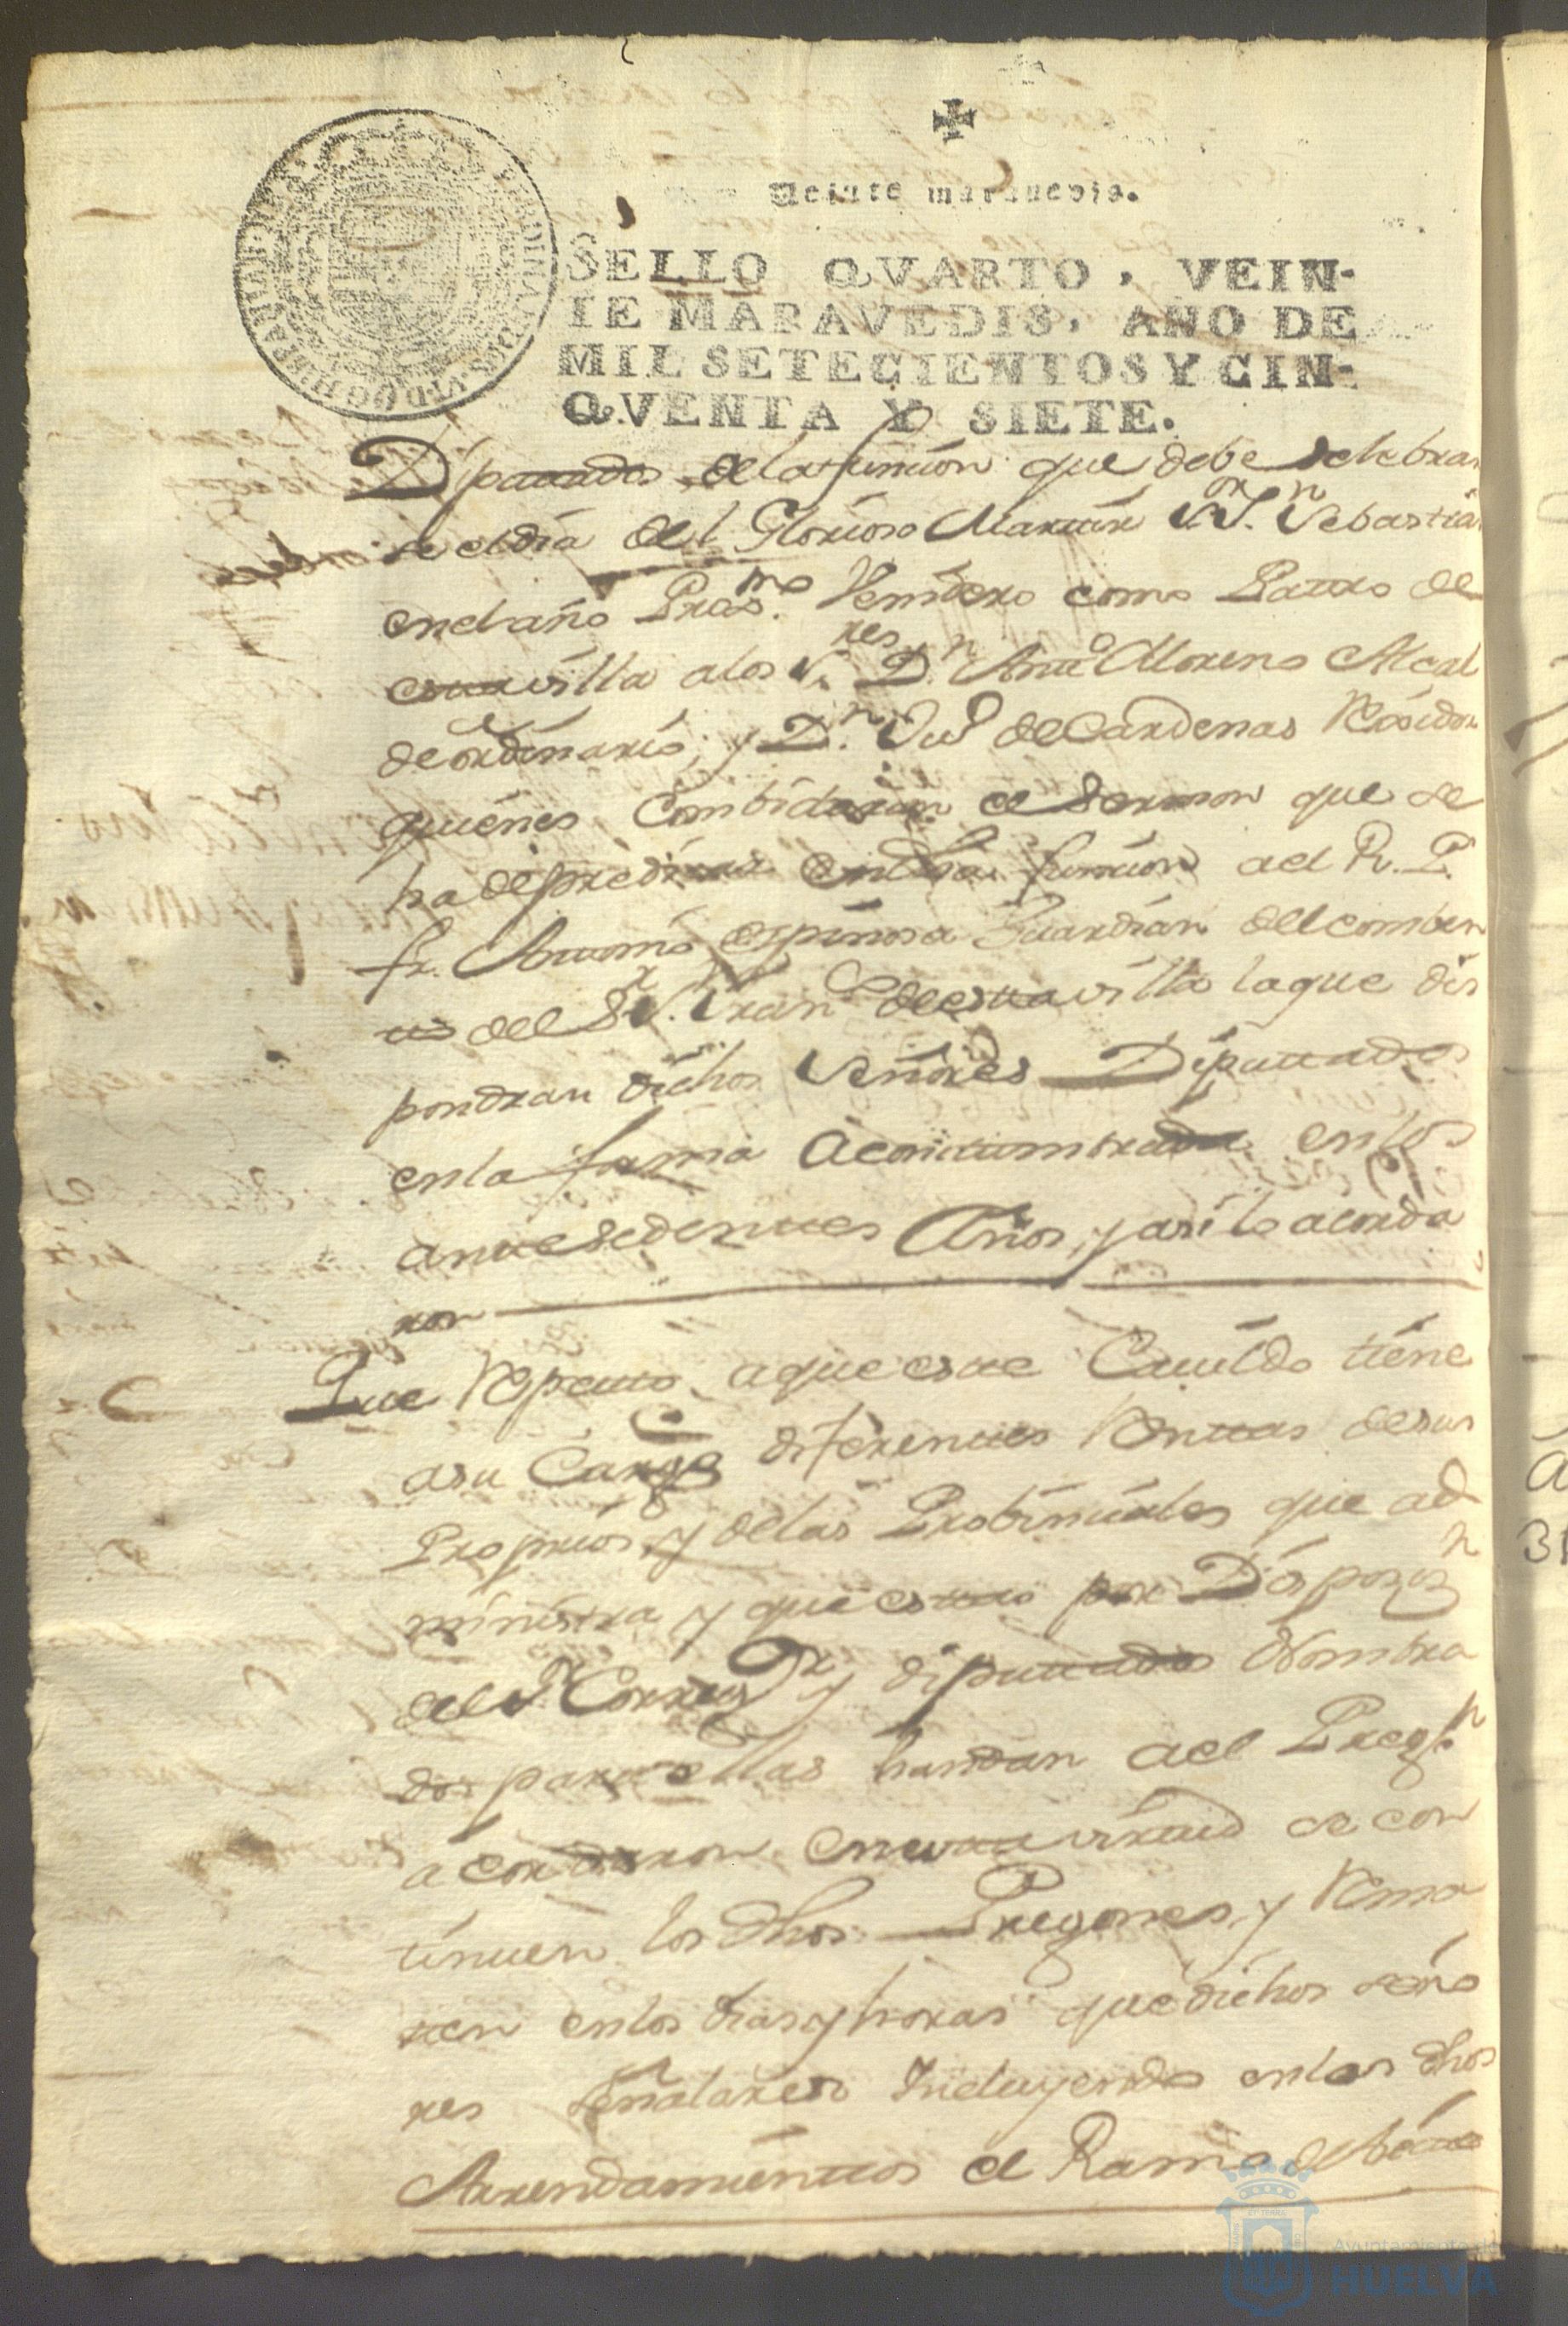 Veinte maravedis.
SELLO QVARTO, VEIN-
TE MARAVEDIS, AÑO DE
MIL SETECIENTOS Y CIN-
QVENTA Y SIETE.
Diputados de la funcion que debe selebrar
se el dia del Glorioso Martir Sor. Sn. Sebastian
en el año Proxmo. Venidero como Patro de
esta villa a los Sres. Dn. Anto. Moreno Alcal
de ordinario, y Dn. Juo. de Cardenas Residor
quienes Combidaran el Sermon que se
ha de predicar en dha. funcion al R. P.
fr. Antonio espinosa Guardian del comben
to del Sr. Sn. Franco. de esta villa la que dis
pondran dichos Señores Diputados
en la forma acostumbrada en los
antesedentes Años, y asi lo acorda
ron
Que Respecto a que este Cauildo tiene
a su Cargo diferentes Rentas de sus
Proprios, y de las Probinciales que ad
ministra y que estas por Disposn.
del Sr. Corregor. y diputados Nombra
dos para ellas handan al Pregon
acordaron en esta virtud se con
tinuen los dhos. Pregones, y Rema
ten en los dias y horas que dichos seño
res señalaren Incluyendo en los dhos
Arrendamientos el Ramo de
Ayuntamiento de
HUELVA